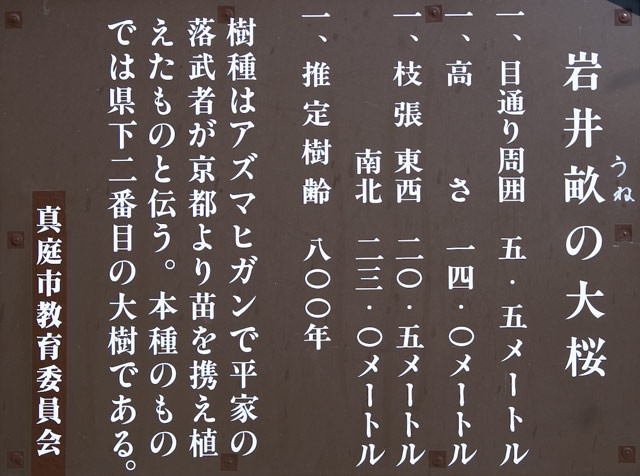 岩井畝の大桜
うね
一、目通り周囲 五・五メートル
一、高さ 一四・〇メートル
一、枝張 東西 二〇・五メートル
南北 二三・〇メートル
一、推定樹齢 八〇〇年
樹種はアズマヒガンで平家の
落武者が京都より苗を携え植
えたものと伝う。本種のもの
では県下二番目の大樹である。
真庭市教育委員会